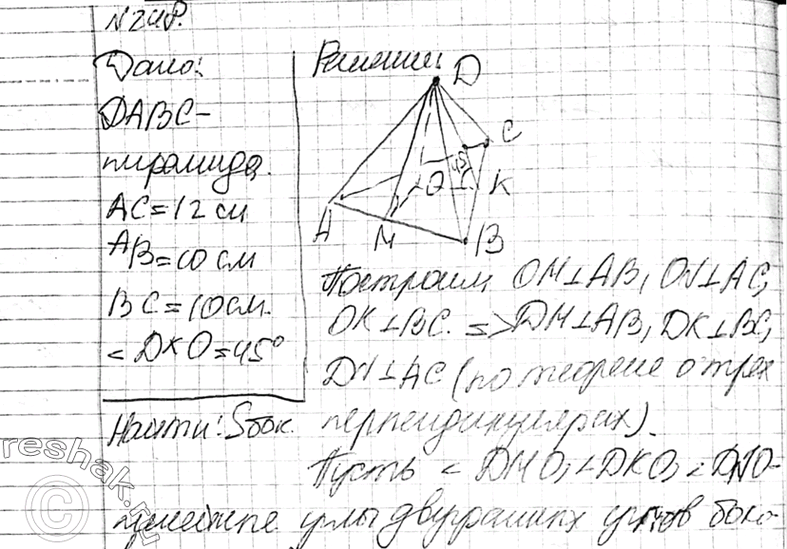 N248.
Дано:
DABC-
пирамида.
AC=12 см
AB=10 см
BC=10 см.
∠DKO=45°
Найти: Sбок.
Решение:
D
C
45°
O
K
A
M
B
Построим OM⊥AB, ON⊥AC,
OK⊥BC. => DM⊥AB, DK⊥BC,
DN⊥AC (по теореме о трех
перпендикулярах).
Пусть ∠DMO, ∠DKO, ∠DNO-
линейные углы двугранных углов боко-
reshak.ru
©